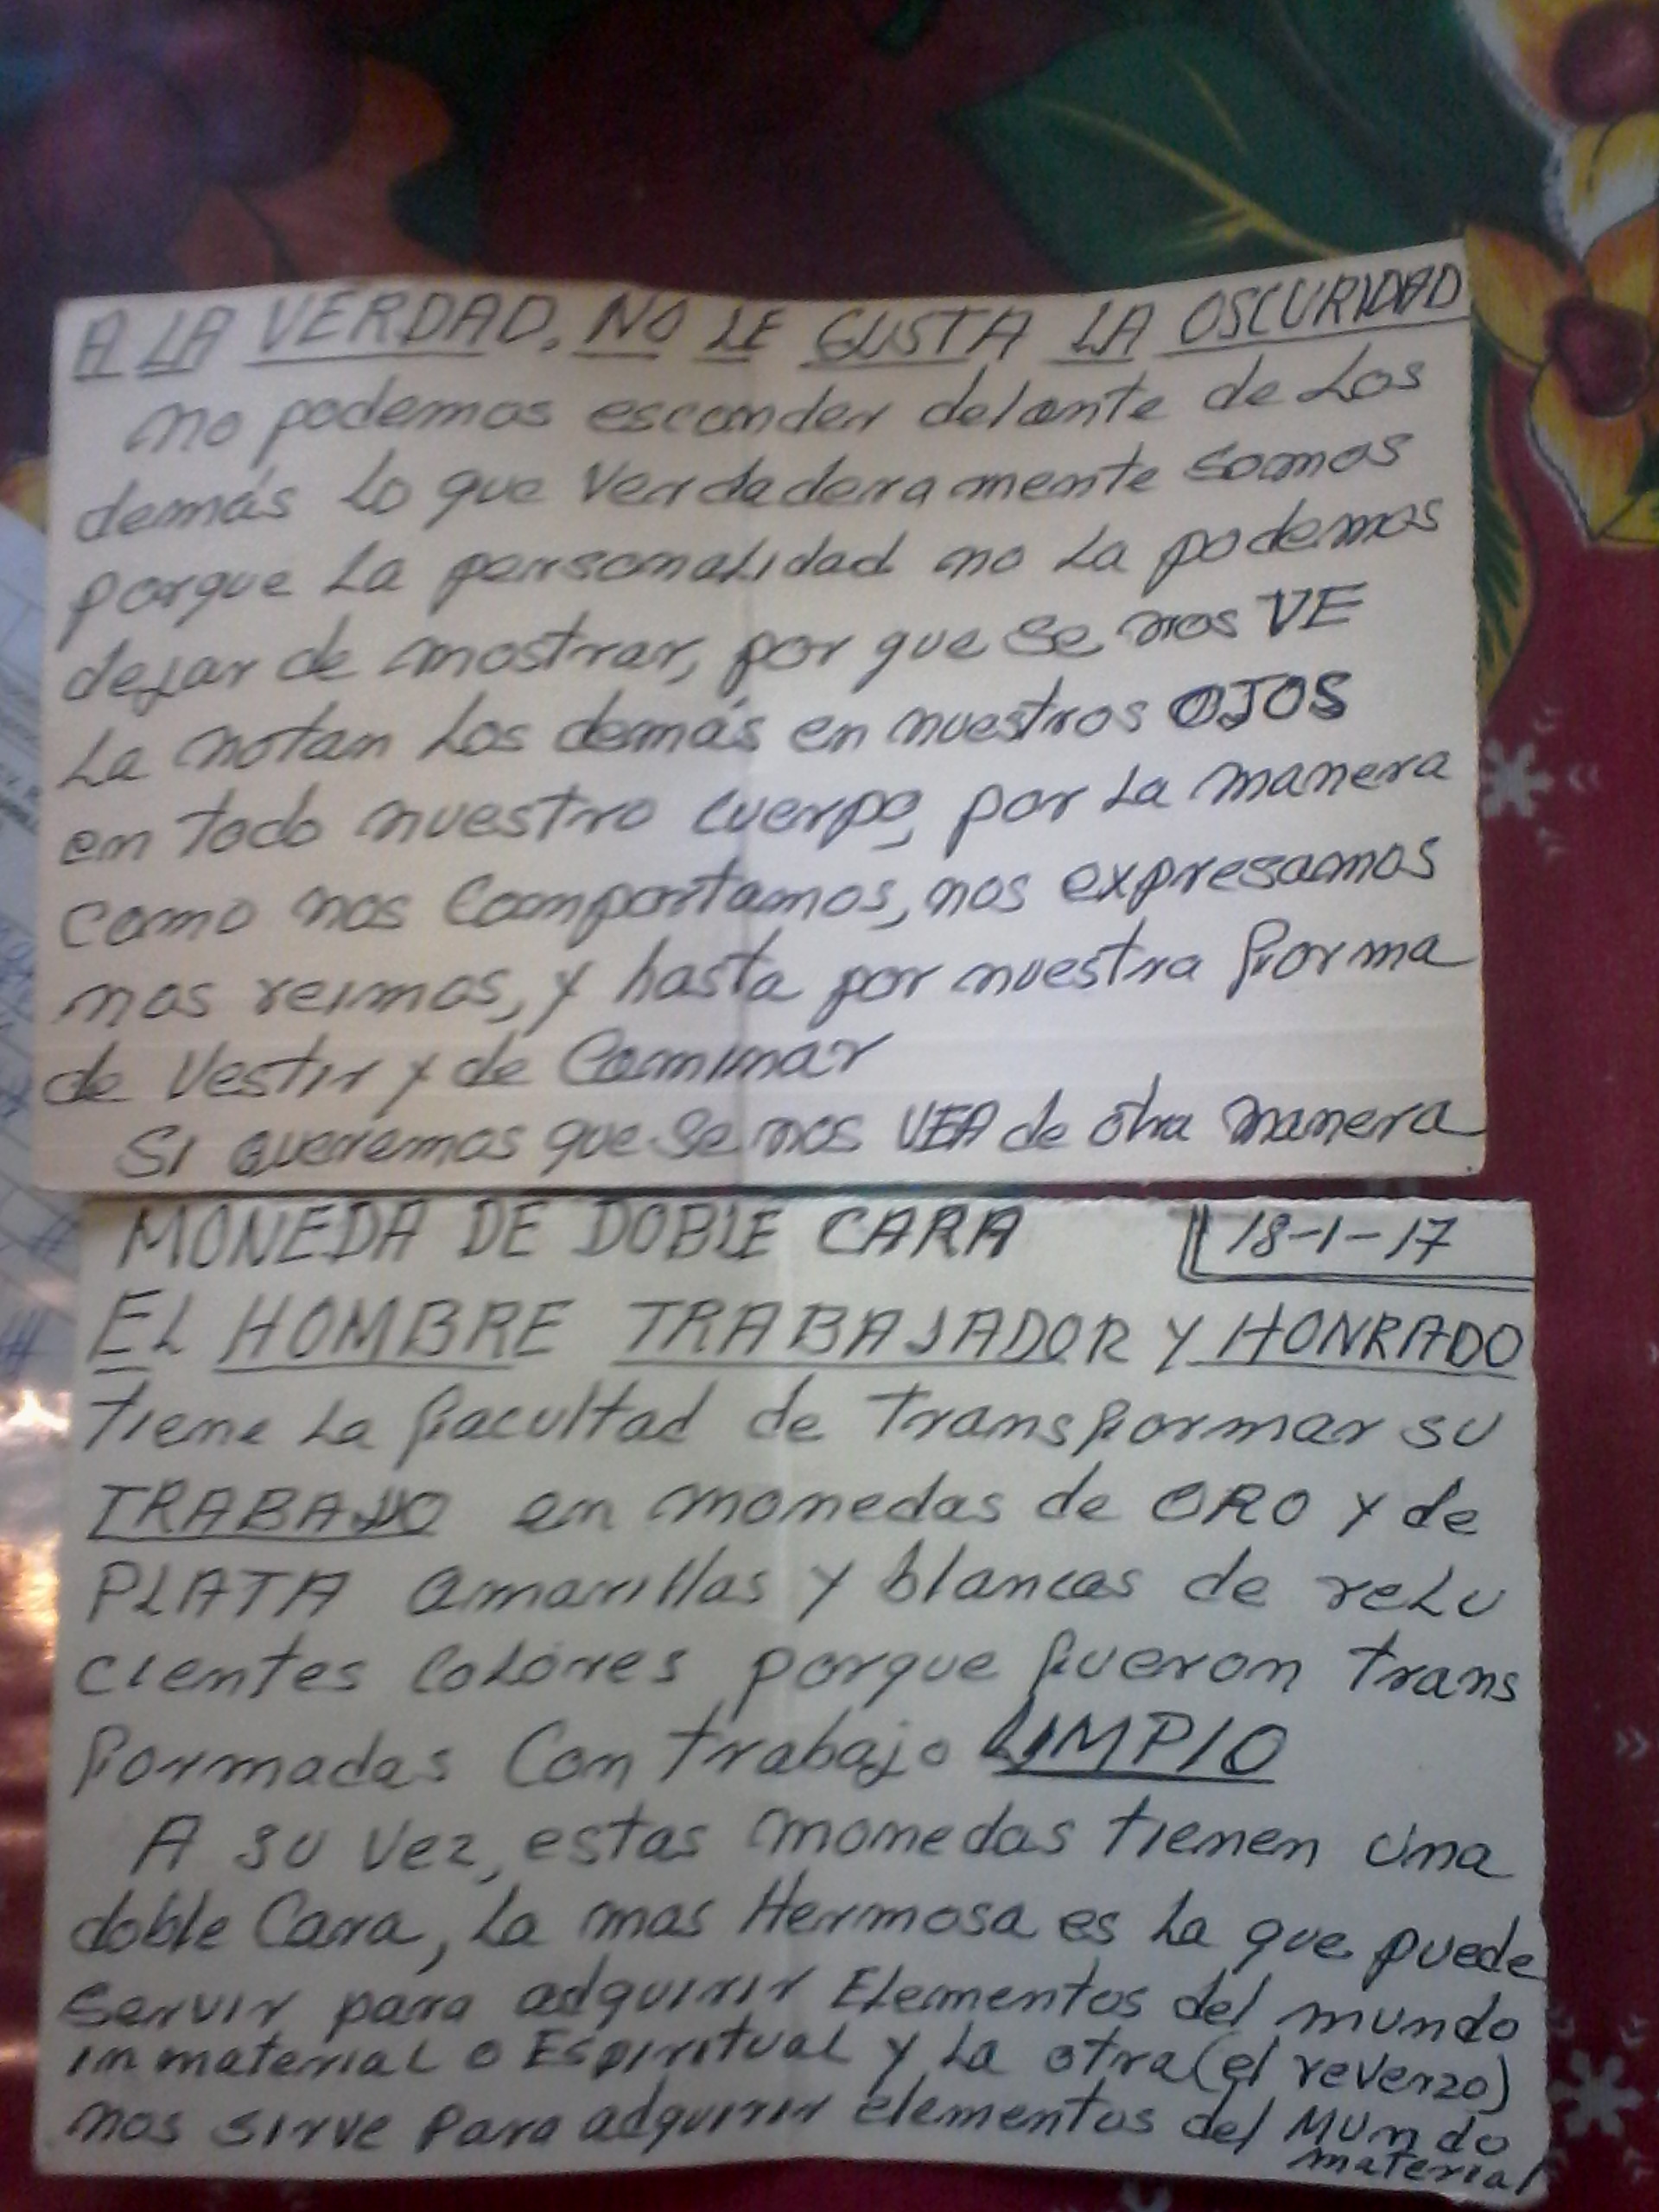 A LA VERDAD, NO LE GUSTA LA OSCURIDAD
no podemos esconder delante de Los
demás Lo que Verdaderamente somos
porque La personalidad no La podemos
dejar de mostrar, por que se nos VE
La notan Los demás en nuestros OJOS
en todo nuestro cuerpo, por La manera
como nos Comportamos, nos expresamos
nos reimos, y hasta por nuestra forma
de Vestir y de Caminar
Si queremos que se nos VEA de otra manera
MONEDA DE DOBLE CARA 18-1-17
EL HOMBRE TRABAJADOR Y HONRADO
tiene La facultad de transformar su
TRABAJO en monedas de ORO y de
PLATA amarillas y blancas de reLu
cientes Colores, porque fueron trans
formadas Con trabajo LIMPIO
A su Vez, estas monedas tienen una
doble Cara, La mas Hermosa es La que puede
Servir para adquirir Elementos del mundo
inmaterial o Espiritual y La otra (el reverzo)
nos sirve Para adquirir elementos del MUndo
material